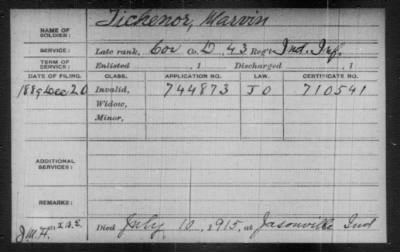 Tichenor, Marvin
NAME OF SOLDIER:
SERVICE: Late rank, Cor Co. D, 43 Reg't Ind. Inf.
TERM OF SERVICE: Enlisted , 1 Discharged , 1
DATE OF FILING. CLASS. APPLICATION NO. LAW. CERTIFICATE NO.
1889 Dec 20 Invalid, 744873 J O 710541
Widow,
Minor,
ADDITIONAL SERVICES:
REMARKS:
J.M.H.
Died July 10, 1915, at Jasonville Ind